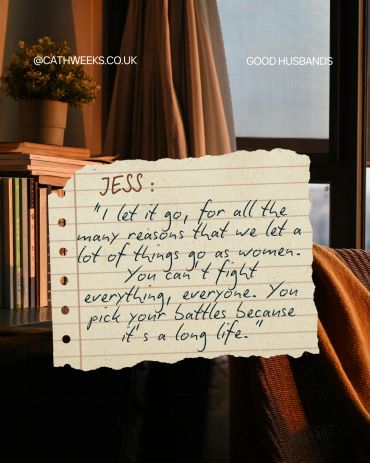 @CATHWEEKS.CO.UK
GOOD HUSBANDS
JESS:
"I let it go, for all the
many reasons that we let a
lot of things go as women.
You can't fight
everything, everyone. You
pick your battles because
it's a long life."